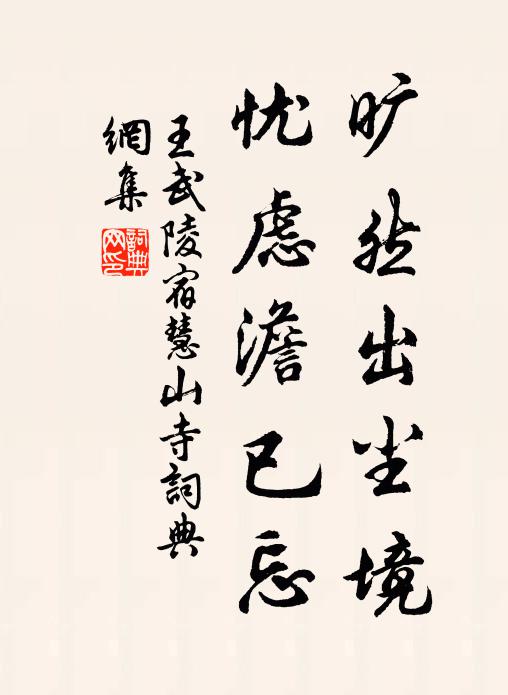 旷然出尘境
忧虑澹已忘
王武陵宿慧山寺詞典
網集
詞典
网印